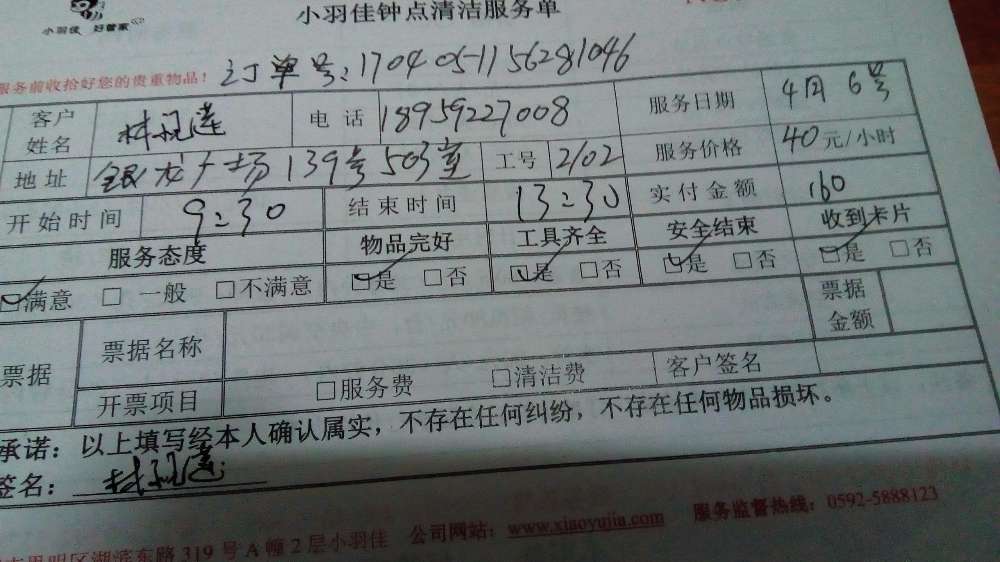 小羽佳 好管家
小羽佳钟点清洁服务单
服务前收拾好您的贵重物品! 订单号:1704051156281046
客户姓名 林 莲 电话 18959227008 服务日期 4月6号
地址 银龙广场139号503室 工号 2102 服务价格 40元/小时
开始时间 9:30 结束时间 13:30 实付金额 160
服务态度 物品完好 工具齐全 安全结束 收到卡片
☑满意 □一般 □不满意 ☑是 □否 ☑是 □否 ☑是 □否 ☑是 □否
票据 票据名称 票据金额
开票项目 □服务费 □清洁费 客户签名
承诺:以上填写经本人确认属实,不存在任何纠纷,不存在任何物品损坏。
签名:林 莲
思明区湖滨东路319号A幢2层小羽佳 公司网站:www.xiaoyujia.com 服务监督热线:0592-5888123